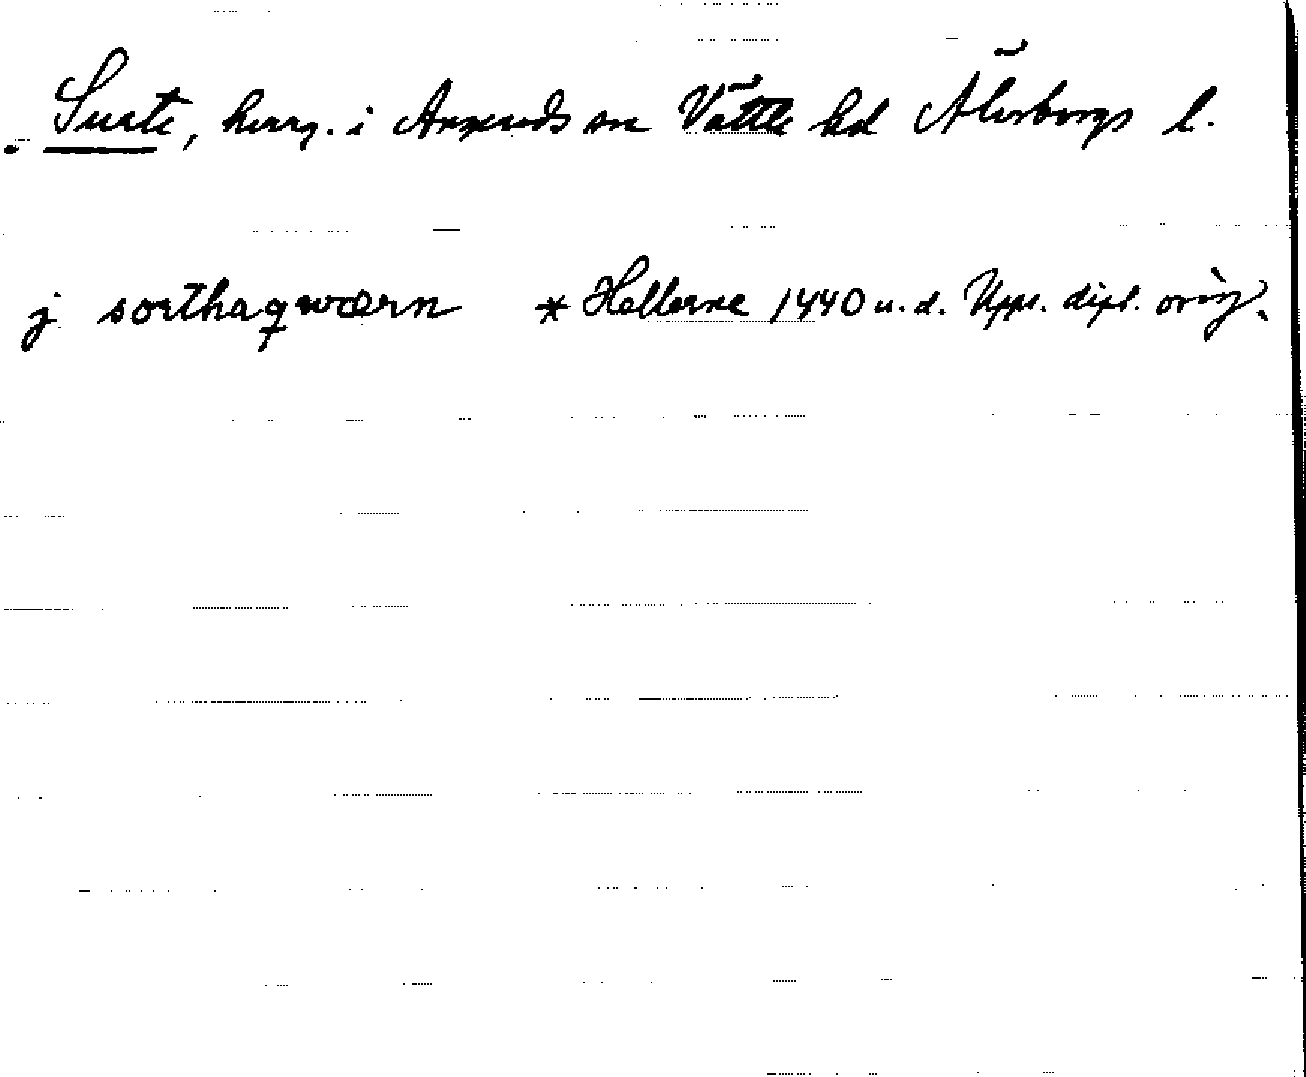 Surte, herrg. i Angereds sn Vättle hd Älvsborgs l.
j sorthaqwærn * Hellerne 1440 u. d. Upps. dipl. orig.